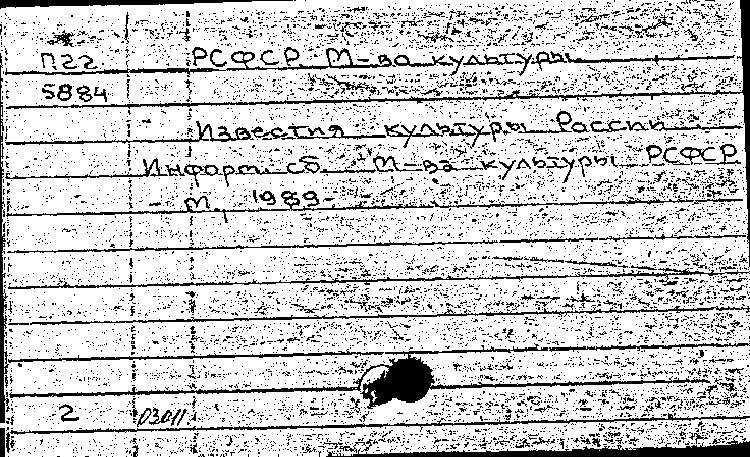 П22 РСФСР М-во культуры.
5884
Известия культуры России
Информ. сб. М-ва культуры РСФСР
М., 1989-
2 03011